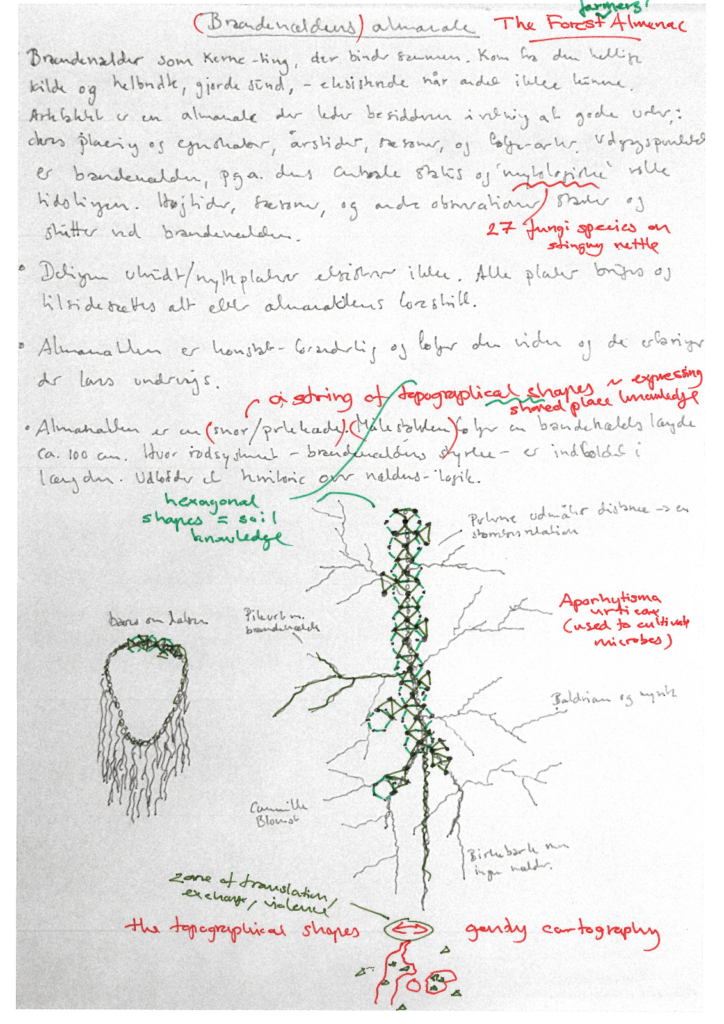 farmers'
(Brændenældens) almanak The Forest Almanac
Brændenælder som kerne-ting, der binder sammen. Kom fra den hellige
kilde og helbredte, gjorde sund, - eksisterede når andet ikke kunne.
Artefaktet er en almanak der leder besidderen i retning af gode
deres placering og årstider, sæsoner, og følge-arter. Udgangspunktet
er brændenælden, pga. dens centrale status og "mytologiske" rolle
Højtider, sæsoner, og andre observationer starter og
slutter ved brændenælden.
27 fungi species on
stinging nettle
• ukrudt/nytteplanter eksisterer ikke. Alle planter bruges og
tilsidesættes alt efter almanakkens forskrift.
• Almanakken er konstant foranderlig og følger den viden og de erfaringer
der
a string of topographical shapes ~ expressing
shared place knowledge
• Almanakken er en (snor/perlekæde). (Målestokken) følger en brændenældes længde
ca. 100 cm. Hvor rodsystemet - brændenældens styrke - er indfoldet i
længden. Udfolder et territorie over nældens-logik.
hexagonal
shapes = soil
knowledge
Perlerne udmåler distance → en
bæres om halsen
brændenælde
Aporhytisma
urticae
(used to cultivate
microbes)
Baldrian og
Camille
Blomst
Birkebark
ingen nælder.
zone of translation,
exchange, violence
the topographical shapes gandy cartography